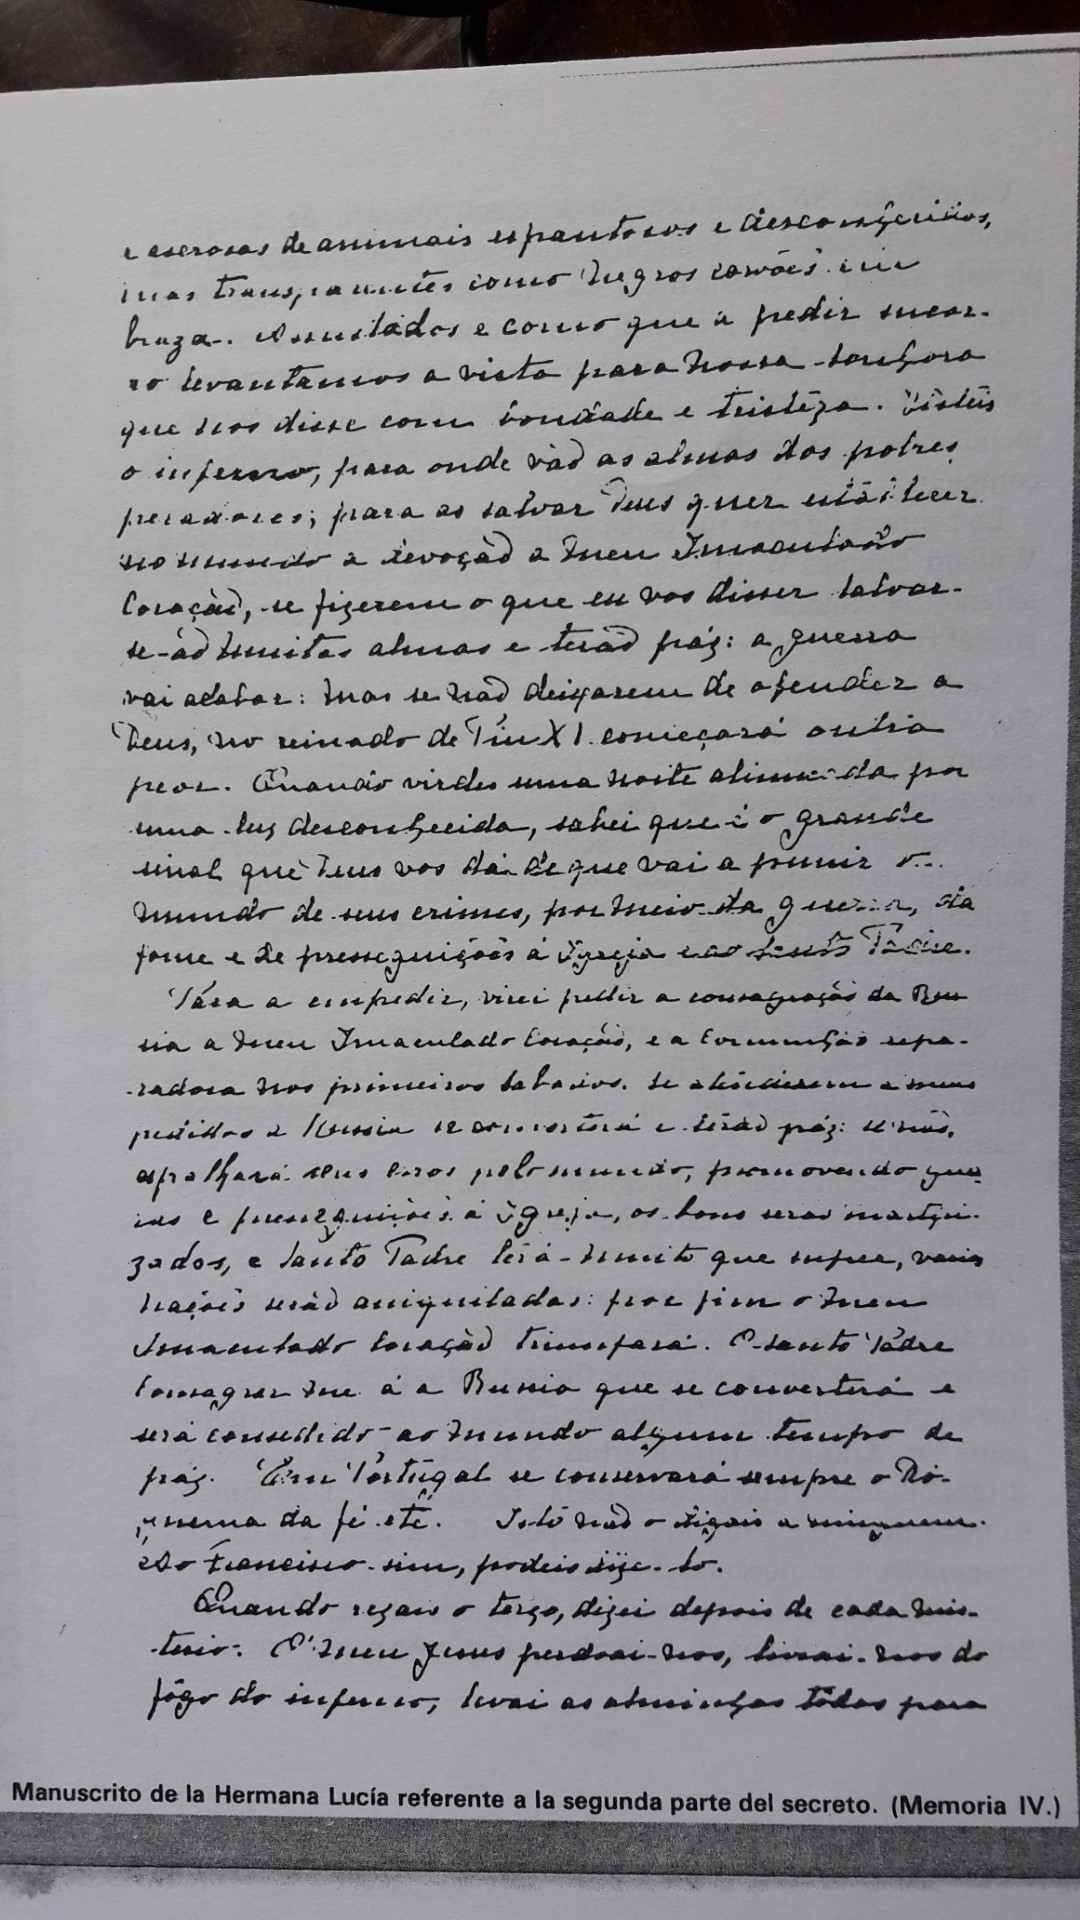 e ascrosas de animais espantosos e desconhecidos,
mas transparentes como negros carvões em
braza. Assustados e como que a pedir socor-
ro levantamos a vista para Nossa Senhora
que nos disse com bondade e tristêza. Visteis
o inferno, para onde vão as almas dos pobres
pecadores; para as salvar Deus quer establecer
no mundo a devoção a meu Imaculado
Coração, se fizerem o que eu vos disser salvar-
se-ão muitas almas e terão páz: a guerra
vai acabar: mas se não deixarem de ofender a
Deus, no reinado de Pio XI começará outra
peor. Quando virdes uma noite alumiada por
uma luz desconhecida, sabei que é o grande
sinal que Deus vos dá de que vai a punir o
mundo de seus crimes, por meio da guerra, da
fome e de perseguições á Igreja e ao Santo Padre.
Para a empedir, virei pedir a consagração da Rus
sia a meu Imaculado Coração, e a Comunhão repa-
radora nos primeiros sabados. Se atenderem a meus
pedidos a Russia se converterá e terão páz: se não,
espalhará seus erros pelo mundo, promovendo guer
ras e perseguições á Igreja, os bons serão martiri-
zados, o Santo Padre terá muito que sofrer, varias
nações serão aniquiladas: por fim o meu
Imaculado Coração triunfará. O Santo Padre
Consagrar me á a Russia que se converterá e
será consedido ao mundo algum tempo de
páz. Em Portugal se conservará sempre o Dó-
guema da fé etc. Isto não o digais a ninguem.
Ao Francisco sim, podeis dize-lo.
Quando rezais o terço, dizei depois de cada mis-
terio: O' meu Jesus perdoai-nos, livrai-nos do
fôgo do inferno, levai as alminhas tôdas para
Manuscrito de la Hermana Lucía referente a la segunda parte del secreto. (Memoria IV.)